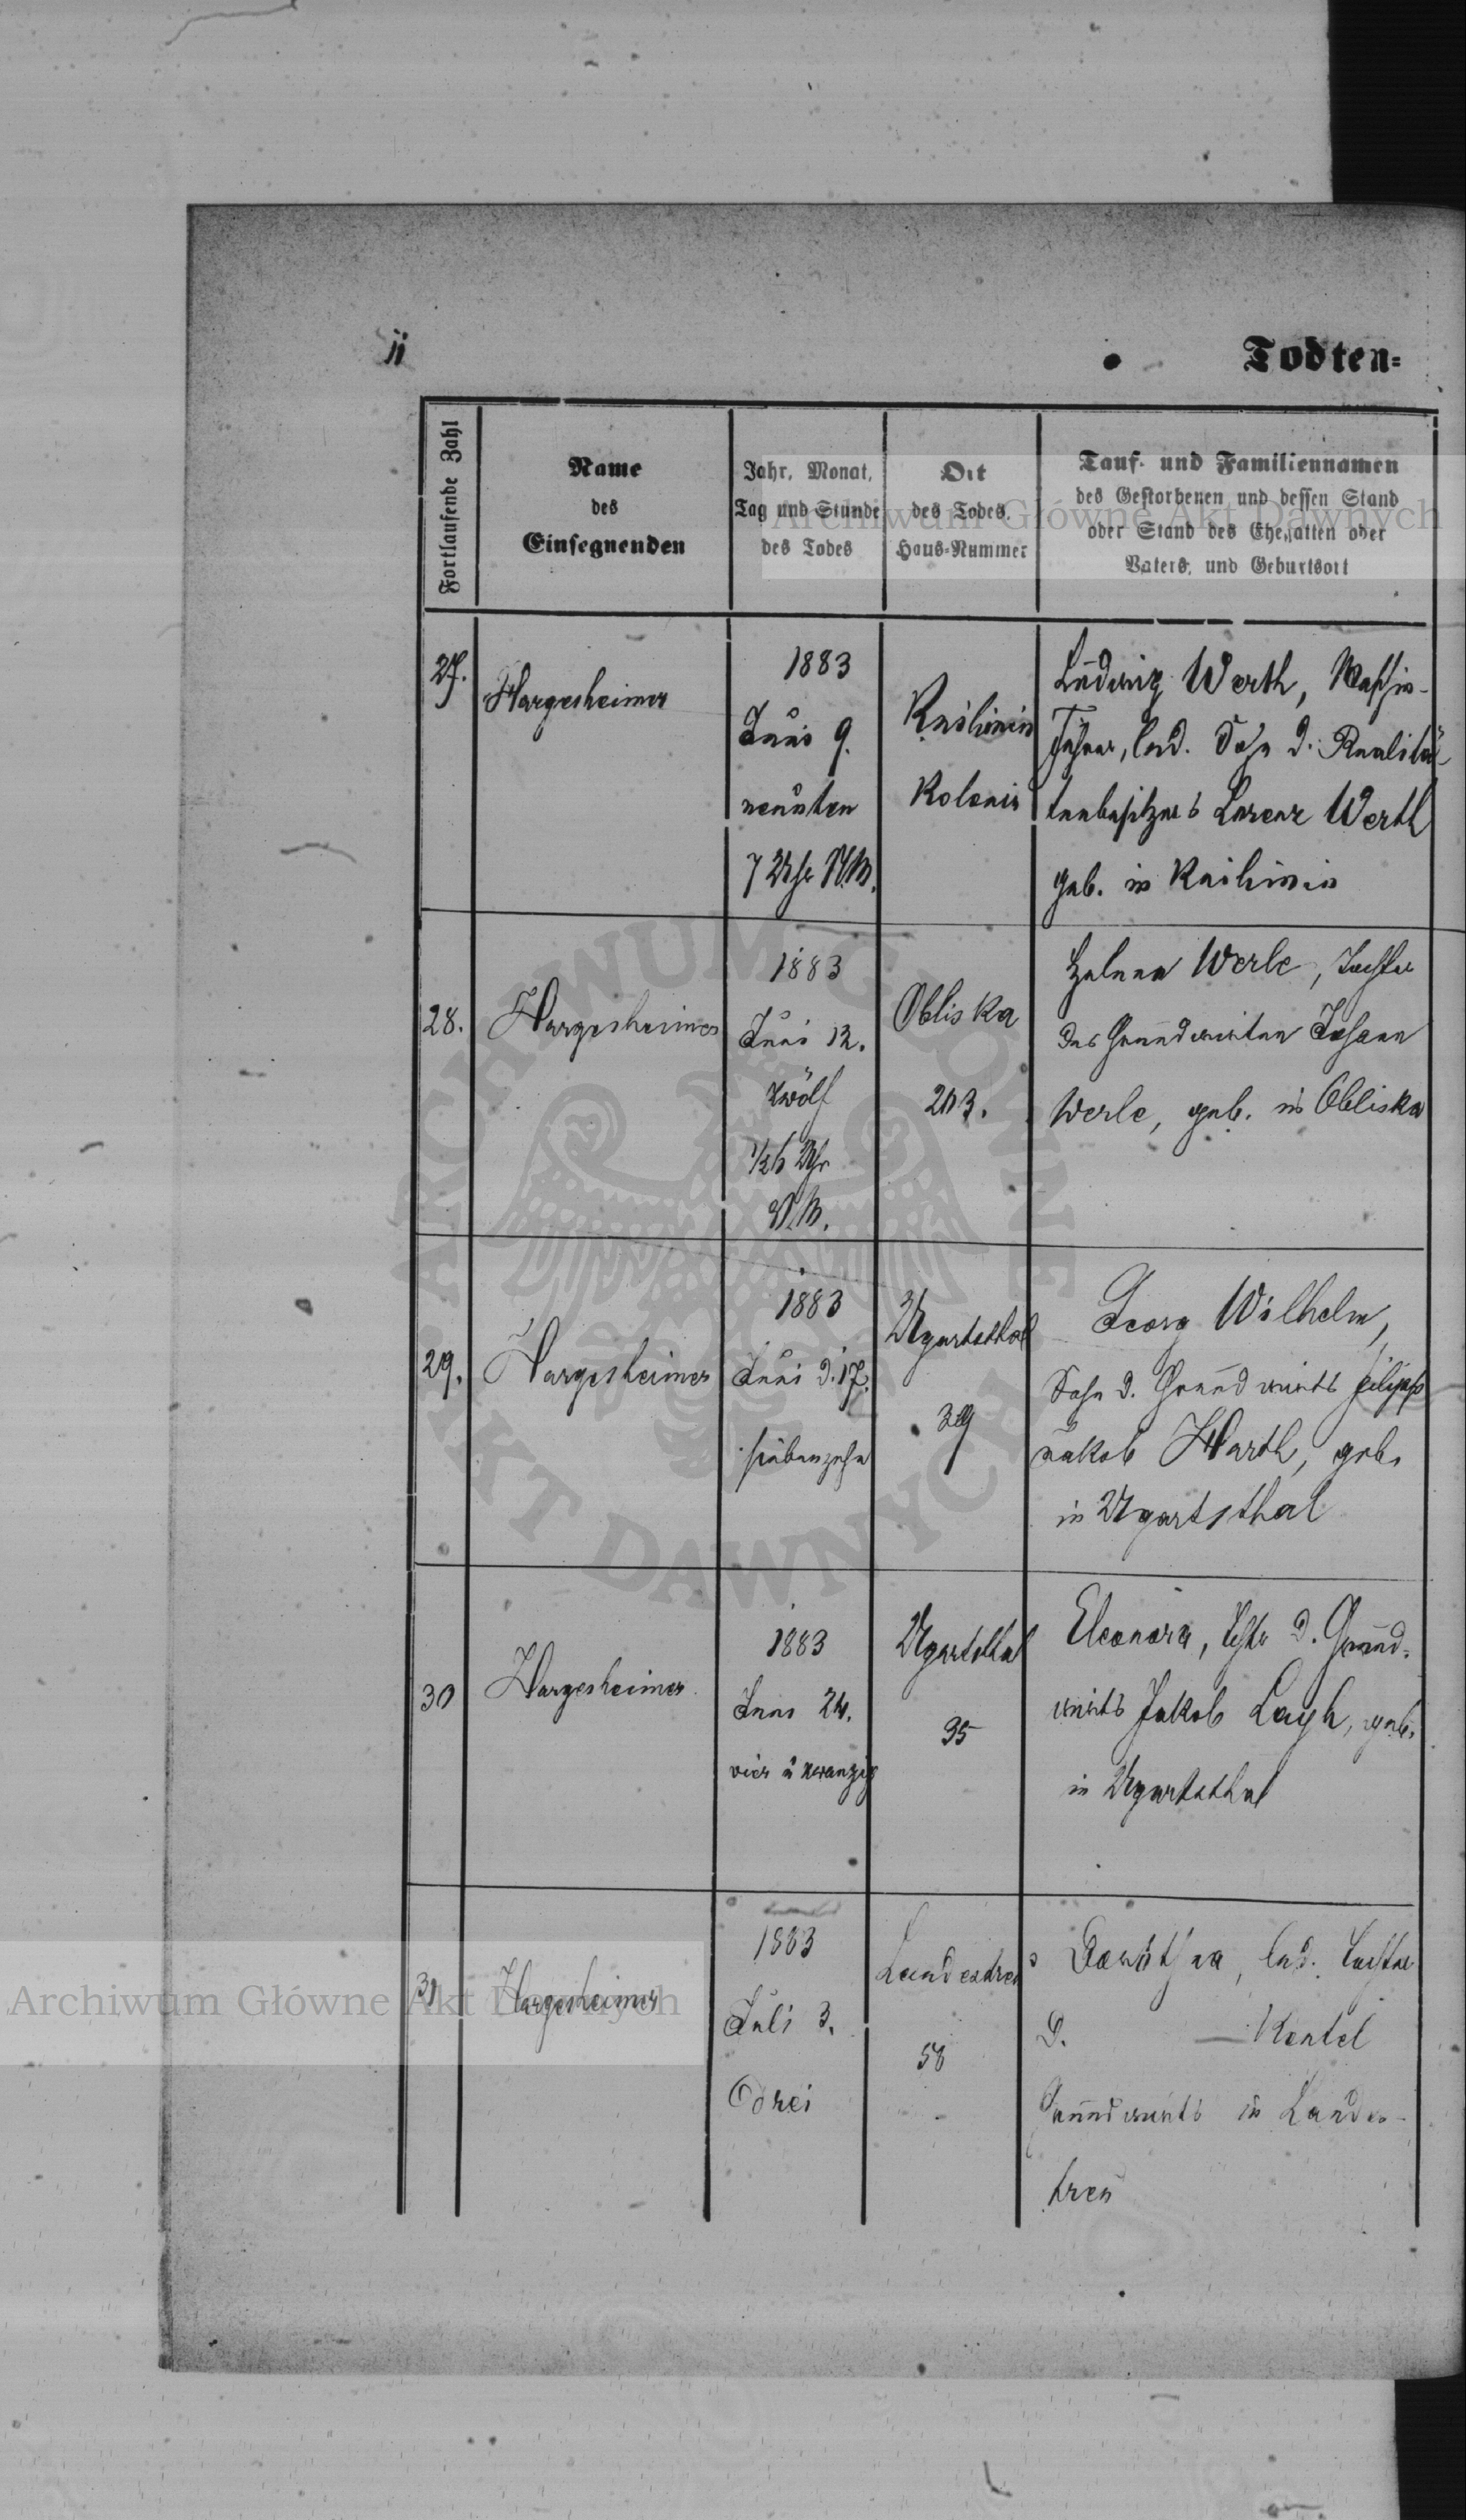 Todten-
Fortlaufende Zahl
Name
des
Einsegnenden
Jahr, Monat,
Tag und Stunde
des Todes
Ort
des Todes,
Haus-Nummer
Tauf- und Familiennamen
des Gestorbenen und dessen Stand
oder Stand des Ehegatten oder
Vaters, und Geburtsort
27.
Hargesheimer
1883
Juni 9.
neunten
7 Uhr N.M.
Knihinin
Kolonie
Ludwig Werth, Maschin-
führer, led. Sohn d. Realitä-
tenbesitzers Lorenz Werth
geb. in Knihinin
28.
Hargesheimer
1883
Juni 12.
zwölf
Uhr
N.M.
Obliska
203.
Helena Werle, Tochter
des Grundwirten Johann
Werle, geb. in Obliska
29.
Hargesheimer
1883
Juni d. 17.
siebenzehn
Ugartsthal
39
Georg Wilhelm,
Sohn d. Grundwirts Filipp
Jakob Harth, geb.
in Ugartsthal
30
Hargesheimer
1883
Juni 24.
vier u zwanzig
Ugartsthal
35
Eleonora, Tcht. d. Grund-
wirts Jakob Layh, geb.
in Ugartsthal
31
Hargesheimer
1883
Juli 3.
Drei
Landestreu
58
Dorothea, led. Tochter
d. — Kentel
Grundwirts in Landes-
treu
Archiwum Główne Akt Dawnych
ARCHIWUM GŁÓWNE AKT DAWNYCH
Archiwum Główne Akt Dawnych